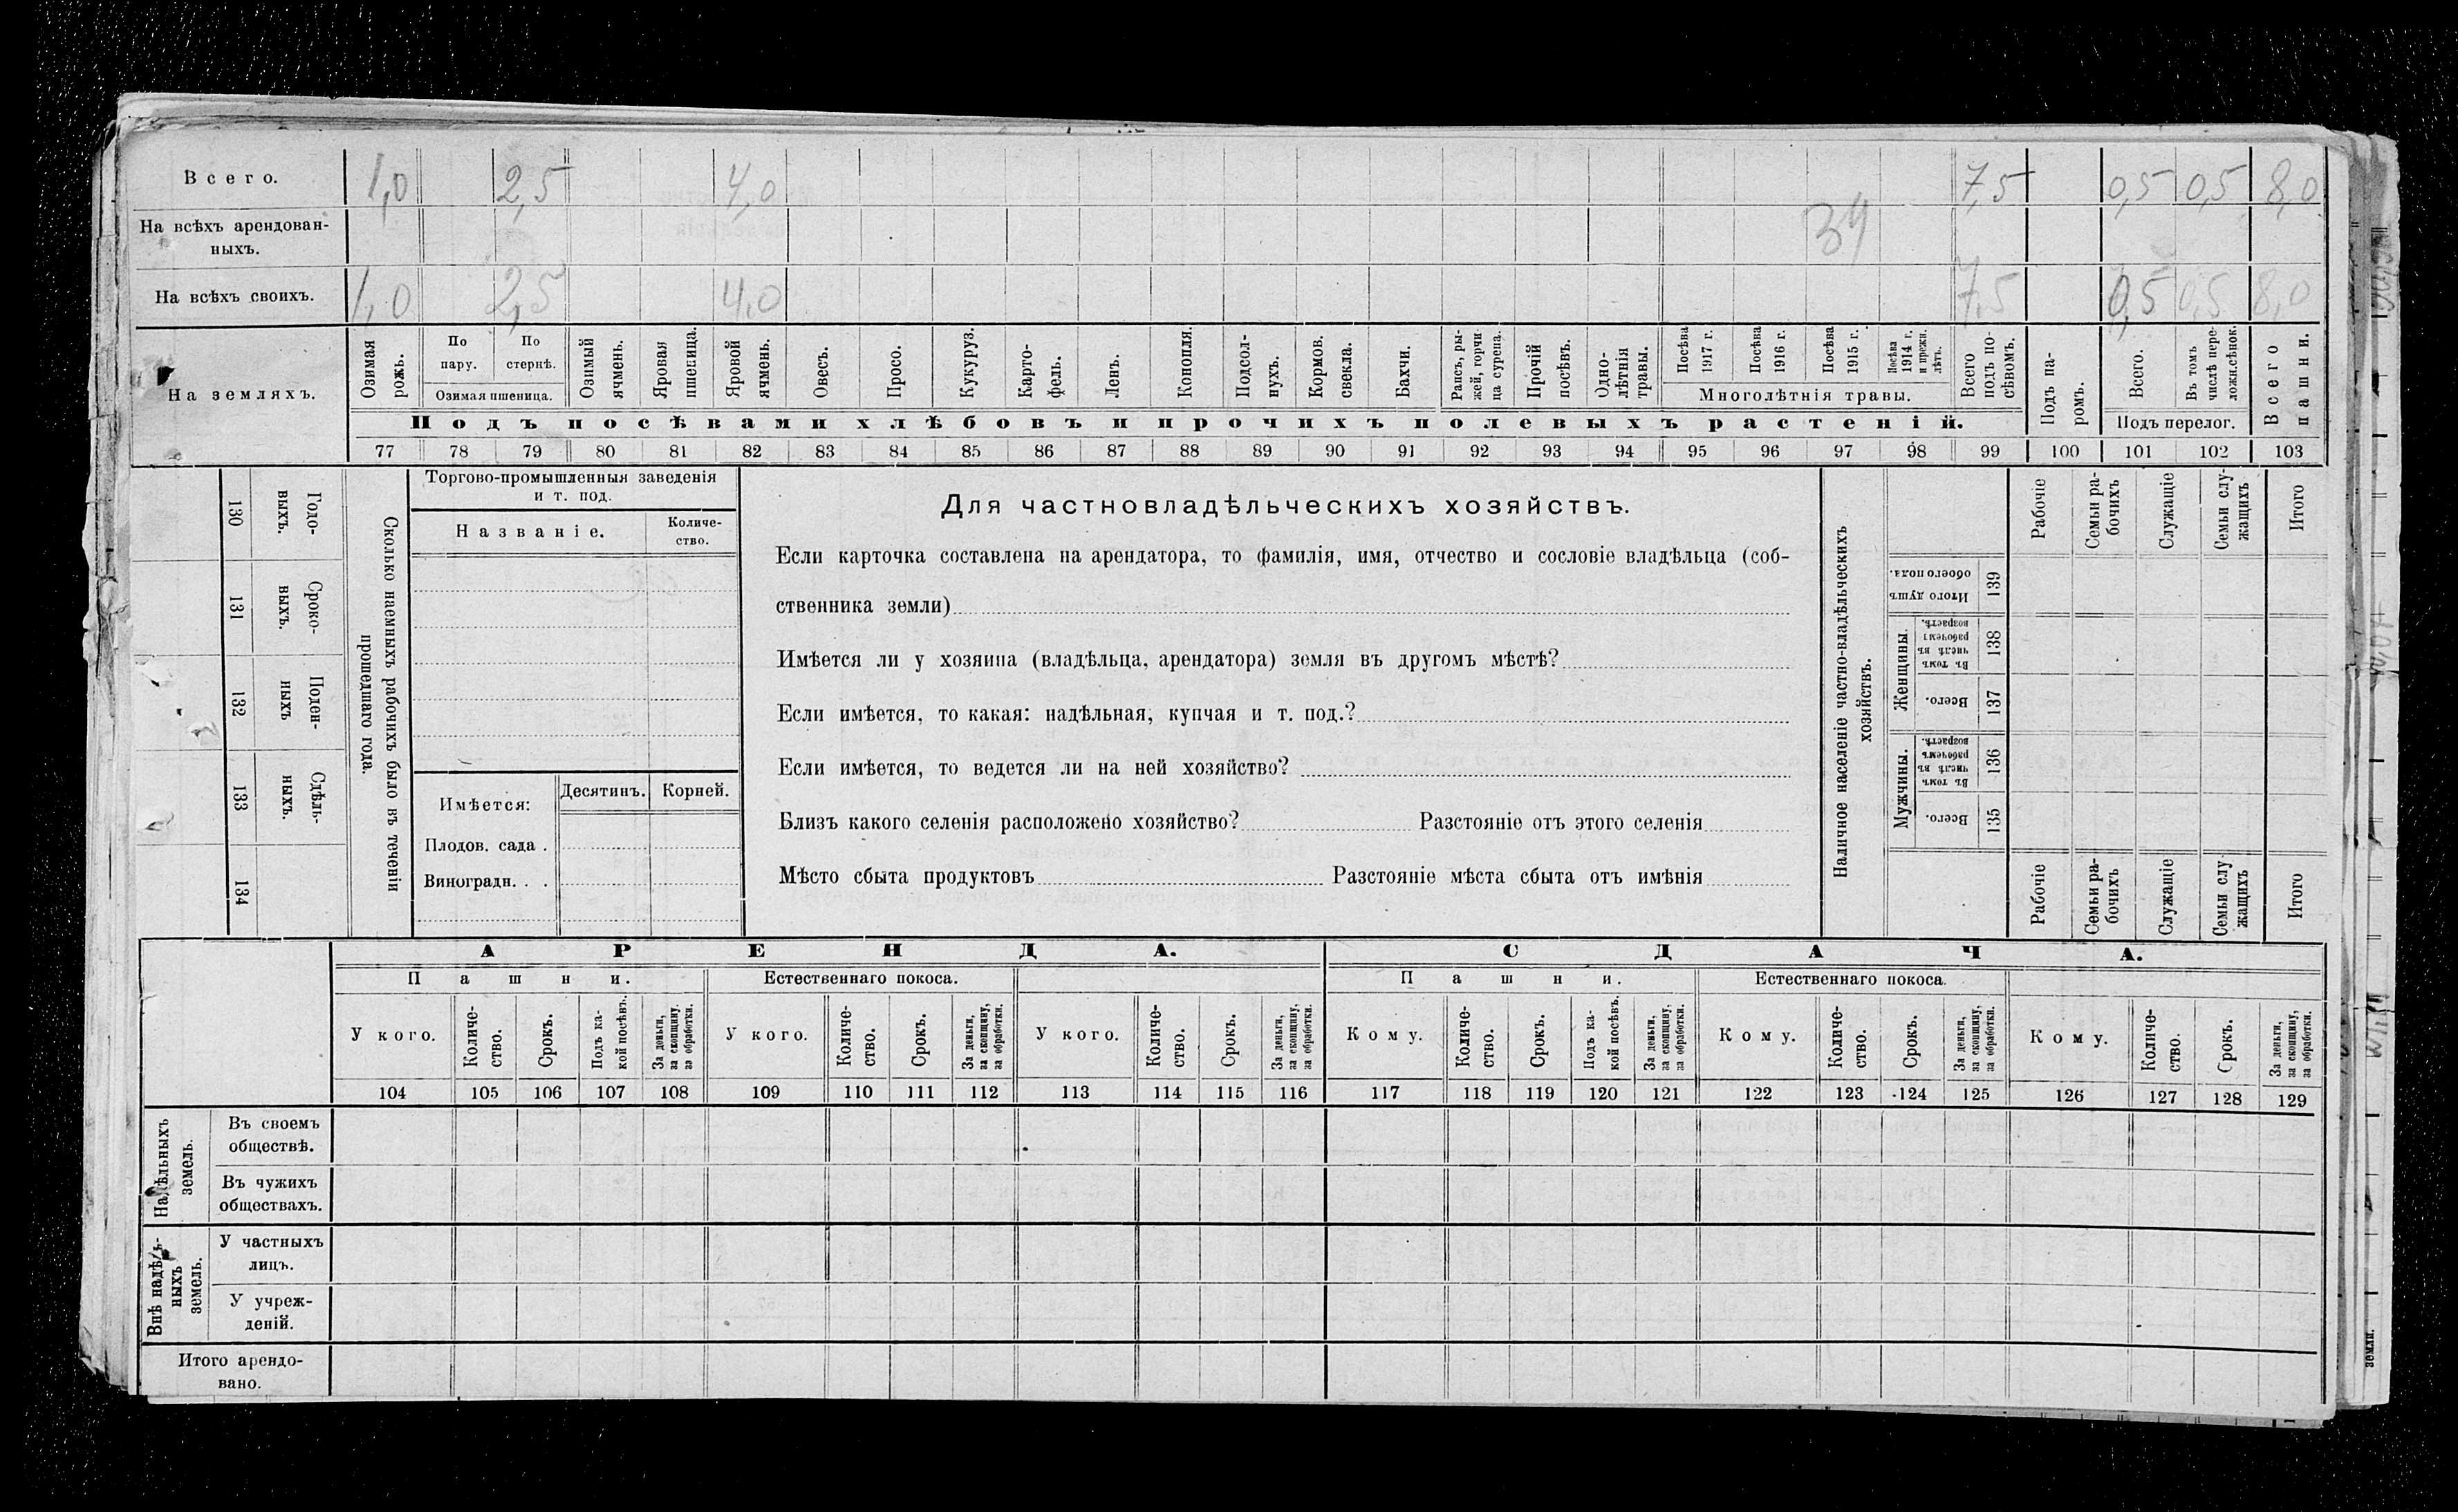 Всего. 1,0 2,5 4,0 7,5 0,5 0,5 8,0
34
На всѣхъ арендован-
ныхъ.
На всѣхъ своихъ. 1,0 2,5 4,0 7,5 0,5 0,5 8,0
На земляхъ.
Озимая рожь.
По пару.
По стернѣ.
Озимая пшеница.
Озимый ячмень.
Яровая пшеница.
Яровой ячмень.
Овесъ.
Просо.
Кукуруз.
Карто-
фель.
Ленъ.
Конопля.
Подсол-
нухъ.
Кормов. свекла.
Бахчи.
Рапсъ, ры-
жей, горчи-
ца сурепа.
Прочій посѣвъ.
Одно-
лѣтнія травы.
Посѣва 1917 г.
Посѣва 1916 г.
Посѣва 1915 г.
Посѣва 1914 г. и прежн. лѣтъ.
Многолѣтнія травы.
Всего подъ по-
сѣвомъ.
Подъ па-
ромъ.
Всего.
Въ томъ числѣ пере-
ложн.сѣнок.
Подъ перелог.
Всего пашни.
Подъ посѣвами хлѣбовъ и прочихъ полевыхъ растеній.
77 78 79 80 81 82 83 84 85 86 87 88 89 90 91 92 93 94 95 96 97 98 99 100 101 102 103
130 Годо-
выхъ.
131 Сроко-
выхъ.
132 Поден-
ныхъ
133 Сдѣль-
ныхъ.
134
Сколько наемныхъ рабочихъ было въ теченіи
прошедшаго года.
Торгово-промышленныя заведенія
и т. под.
Названіе.
Количе-
ство.
Имѣется:
Десятинъ.
Корней.
Плодов. сада .
Виноградн. . .
Для частновладѣльческихъ хозяйствъ.
Если карточка составлена на арендатора, то фамилія, имя, отчество и сословіе владѣльца (соб-
ственника земли)
Имѣется ли у хозяина (владѣльца, арендатора) земля въ другомъ мѣстѣ?
Если имѣется, то какая: надѣльная, купчая и т. под.?
Если имѣется, то ведется ли на ней хозяйство?
Близъ какого селенія расположено хозяйство? Разстояніе отъ этого селенія
Мѣсто сбыта продуктовъ Разстояніе мѣста сбыта отъ имѣнія
Наличное населеніе частно-владѣльческихъ
хозяйствъ.
Рабочіе
Семьи ра-
бочихъ
Служащіе
Семьи слу-
жащихъ
Итого
Итого душъ
обоего пола.
139
Женщины.
Въ томъ числѣ въ рабочемъ возрастѣ.
138
Всего.
137
Мужчины.
Въ томъ числѣ въ рабочемъ возрастѣ.
136
Всего.
135
Рабочіе
Семьи ра-
бочихъ
Служащіе
Семьи слу-
жащихъ
Итого
АРЕНДА. СДАЧА.
Пашни. Естественнаго покоса. Пашни. Естественнаго покоса.
У кого.
Количе-
ство.
Срокъ.
Подъ ка-
кой посѣвъ.
За деньги,
за скопщину,
за обработки.
У кого.
Количе-
ство.
Срокъ.
За деньги,
за скопщину,
за обработки.
У кого.
Количе-
ство.
Срокъ.
За деньги,
за скопщину,
за обработки.
Кому.
Количе-
ство.
Срокъ.
Подъ ка-
кой посѣвъ.
За деньги,
за скопщину,
за обработки.
Кому.
Количе-
ство.
Срокъ.
За деньги,
за скопщину,
за обработки.
Кому.
Количе-
ство.
Срокъ.
За деньги,
за скопщину,
за обработки.
104 105 106 107 108 109 110 111 112 113 114 115 116 117 118 119 120 121 122 123 124 125 126 127 128 129
Надѣльныхъ
земель.
Въ своемъ
обществѣ.
Въ чужихъ
обществахъ.
Внѣ надѣль-
ныхъ
земель.
У частныхъ
лицъ.
У учреж-
деній.
Итого арендо-
вано.
земли.